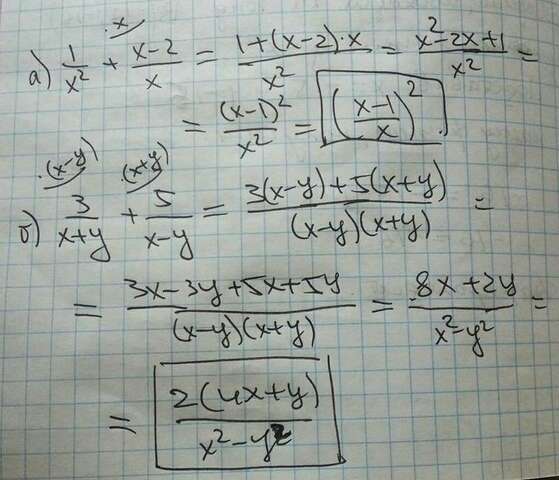 ·x
а) 1/x² + (x-2)/x = (1+(x-2)·x)/x² = (x²-2x+1)/x² =
= (x-1)²/x² = ((x-1)/x)²
·(x-y) (x+y)
б) 3/(x+y) + 5/(x-y) = (3(x-y)+5(x+y))/((x-y)(x+y)) =
= (3x-3y+5x+5y)/((x-y)(x+y)) = (8x+2y)/(x²-y²) =
= 2(4x+y)/(x²-y²)